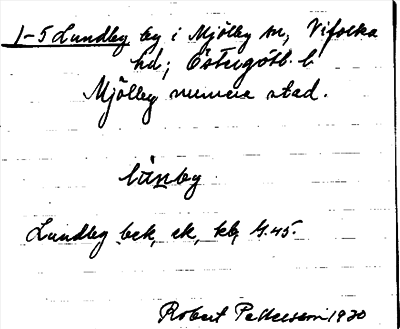 1-5 Lundby by i Mjölby sn, Vifolka
hd; Östergötl. l.
Mjölby numera stad.
lünby
Lundby bck, ek, kb, G.45.
Robert Pettersson 1930